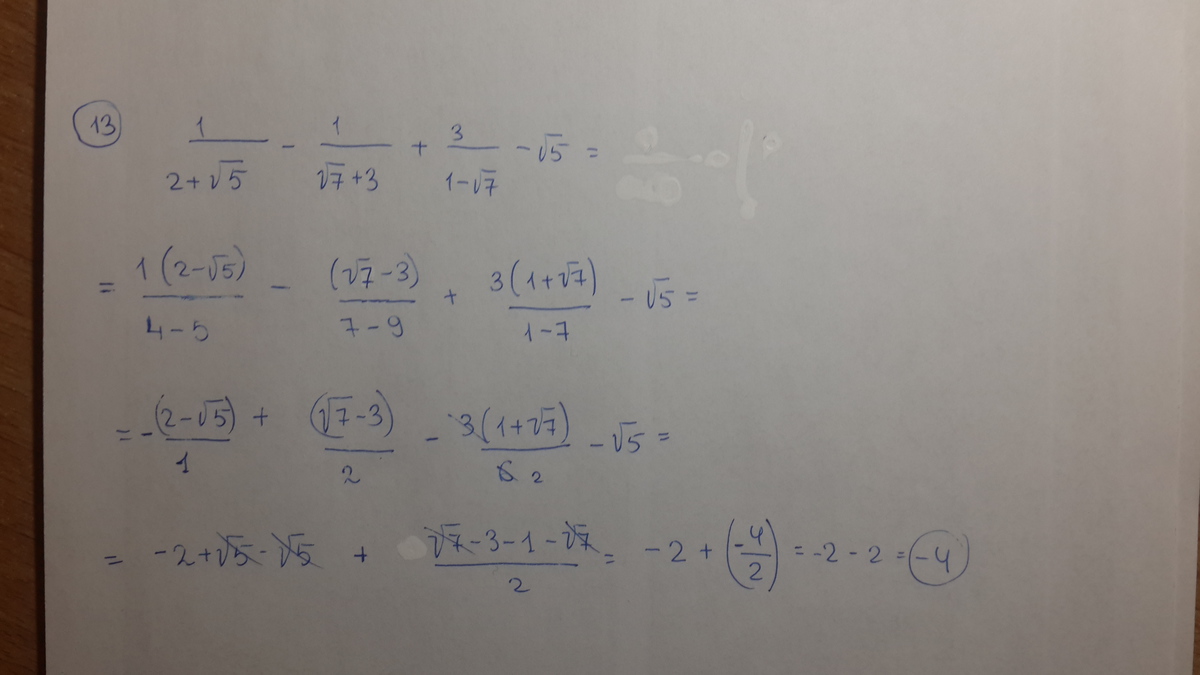 13 1/(2+√5) - 1/(√7+3) + 3/(1-√7) - √5 =
= 1(2-√5)/(4-5) - (√7-3)/(7-9) + 3(1+√7)/(1-7) - √5 =
= -(2-√5)/1 + (√7-3)/2 - 3(1+√7)/6 2 - √5 =
= -2+√5-√5 + (√7-3-1-√7)/2 = -2+(-4/2) = -2-2 = -4